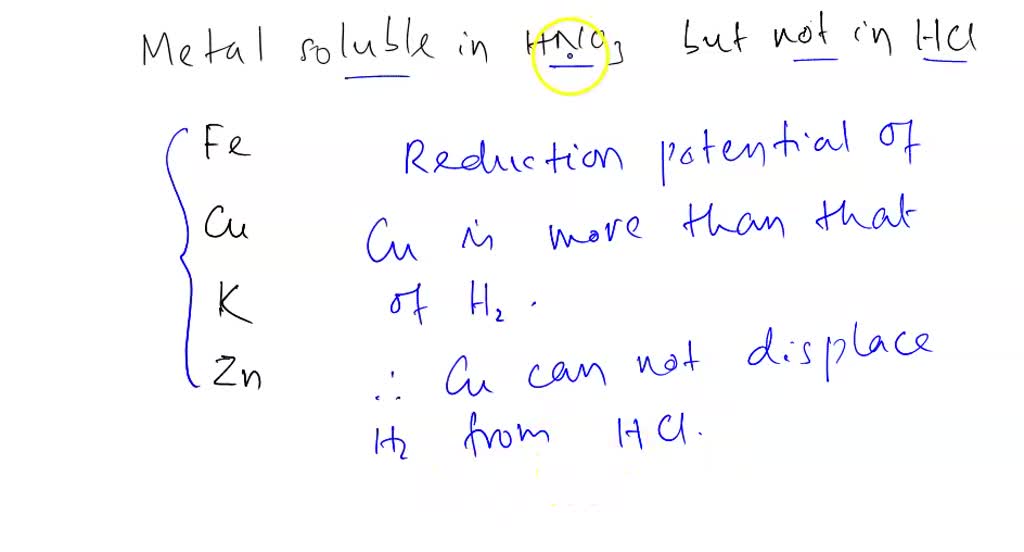 Metal soluble in HNO3 but not in HCl
Fe
Cu
K
Zn
Reduction potential of
Cu is more than that
of H2.
∴ Cu can not displace
H2 from HCl.